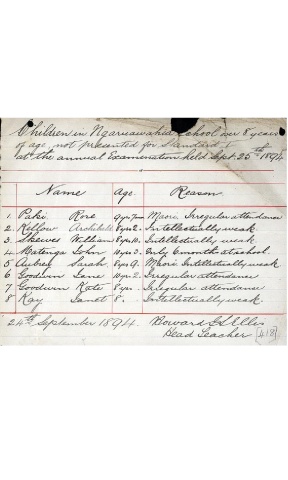 Children in Ngaruawahia School over 8 years
of age, not presented for Standard 1
at the annual Examination held Sept. 25th 1894
Name Age. Reason
1. Paki Rose 9yrs 7mos Maori Irregular attendance
2. Kellow Archibald 8yrs 2. Intellectually weak
3. Skewes William 8yrs 10. Intellectually weak
4. Matenga John 10yrs 3. Only 6 months at school
5 Aubrey Sarah 8yrs 9. Maori Intellectually weak
6 Goodwin Jane 10yrs 2 Irregular attendance
7 Goodwin Kate 8yrs . Irregular attendance
8 Kay Janet 8 . Intellectually weak
24th September 1894. Howard
Head Teacher [418]